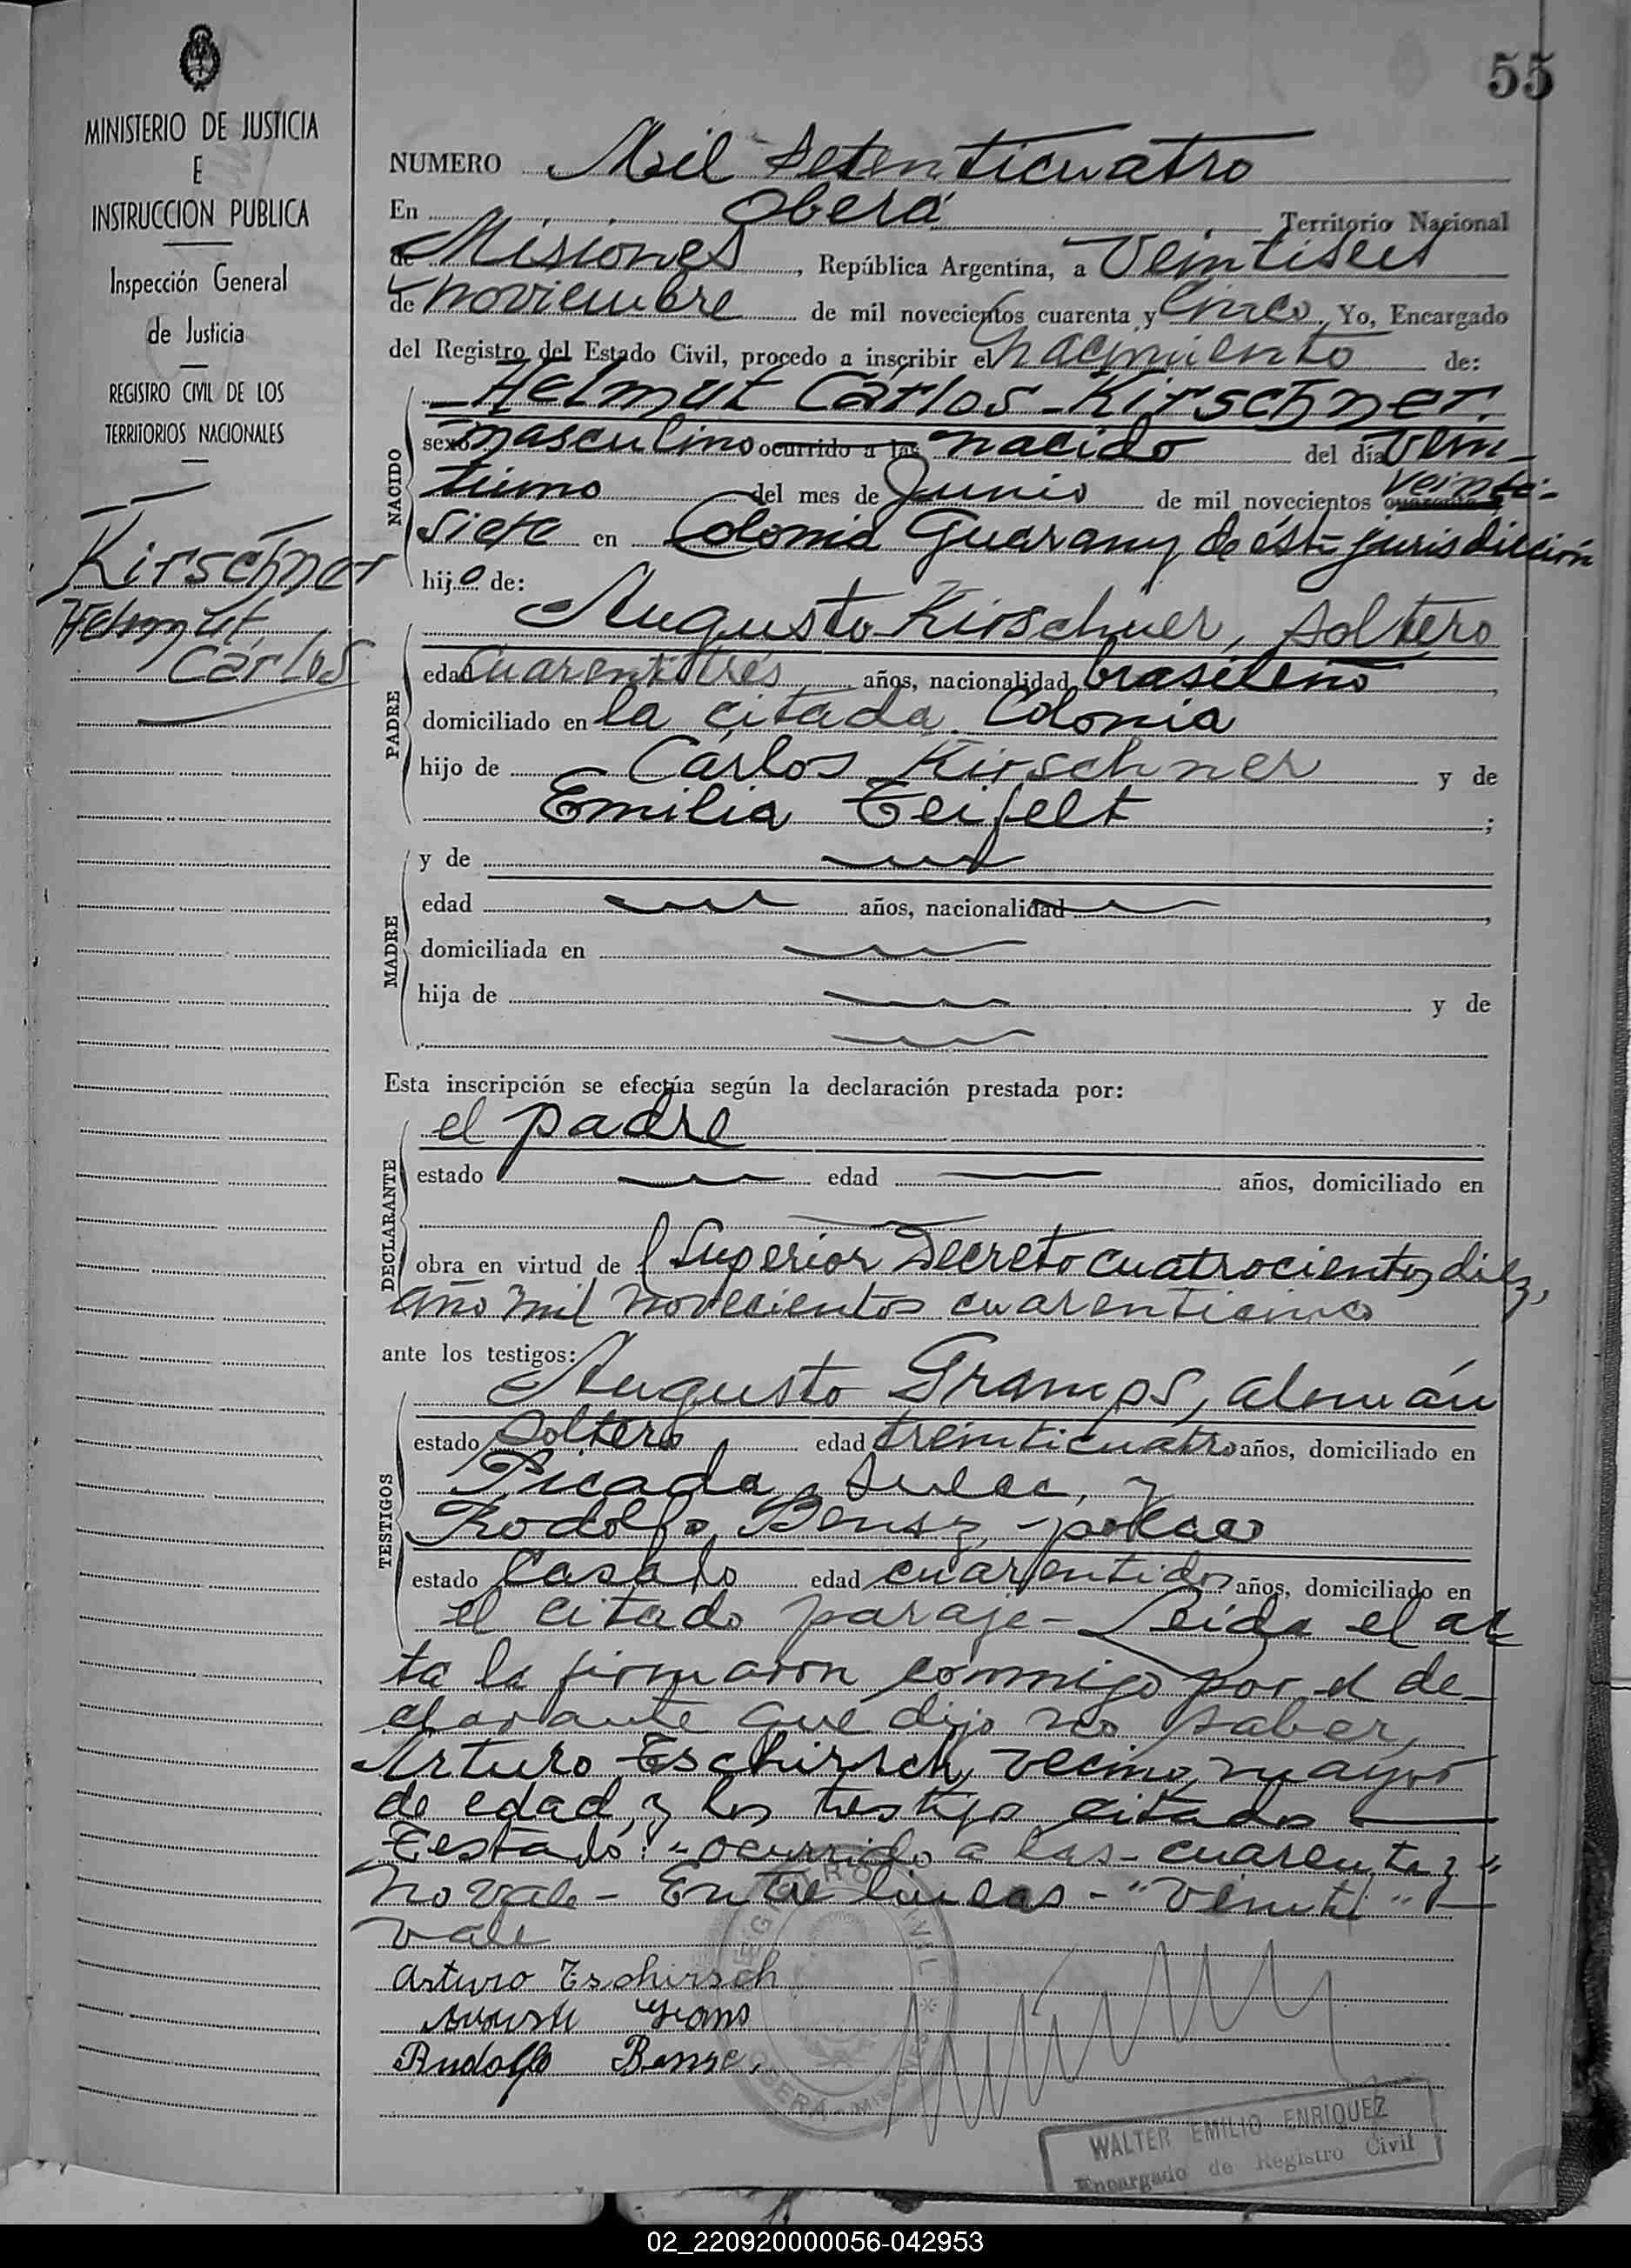 55
MINISTERIO DE JUSTICIA
E
INSTRUCCION PUBLICA
Inspección General
de Justicia
REGISTRO CIVIL DE LOS
TERRITORIOS NACIONALES
Kirschner
Helmut
Carlos
NUMERO Mil setenticuatro
En Oberá Territorio Nacional
de Misiones, República Argentina, a Veintiseis
de noviembre de mil novecientos cuarenta y cinco, Yo, Encargado
del Registro del Estado Civil, procedo a inscribir el nacimiento de:
NACIDO
Helmut Carlos Kirschner.
sexo masculino ocurrido a las nacido del día vein-
tiuno del mes de Junio de mil novecientos cuarenta y veinti-
siete en Colonia Guarany de ésta jurisdicción
hijo de:
PADRE
Augusto Kirschner, soltero
edad cuarentitrés años, nacionalidad brasileño,
domiciliado en la citada Colonia
hijo de Carlos Kirschner y de
Emilia Teifelt;
MADRE
y de
edad años, nacionalidad,
domiciliada en
hija de y de
Esta inscripción se efectúa según la declaración prestada por:
DECLARANTE
el padre
estado edad años, domiciliado en
obra en virtud de Superior Decreto cuatrocientos diez,
año mil novecientos cuarenticinco
ante los testigos:
TESTIGOS
Augusto Gramps, alemán
estado soltero edad treinticuatro años, domiciliado en
Picada Sueca, y
Rodolfo Bensz, polaco
estado Casado edad cuarentidos años, domiciliado en
el citado paraje - Leida el ac
ta la firmaron conmigo por el de-
clarante que dijo no saber,
Arturo Eschirsch, vecino, mayor
de edad, y los testigos citados
Testado: "ocurrido a las - cuarenta y"
No vale - Entre lineas - "Veinti"
vale
Arturo Eschirsch
Rudolfo
REGISTRO CIVIL
OBERA - MISIONES
WALTER EMILIO ENRIQUEZ
Encargado de Registro Civil
02_220920000056-042953